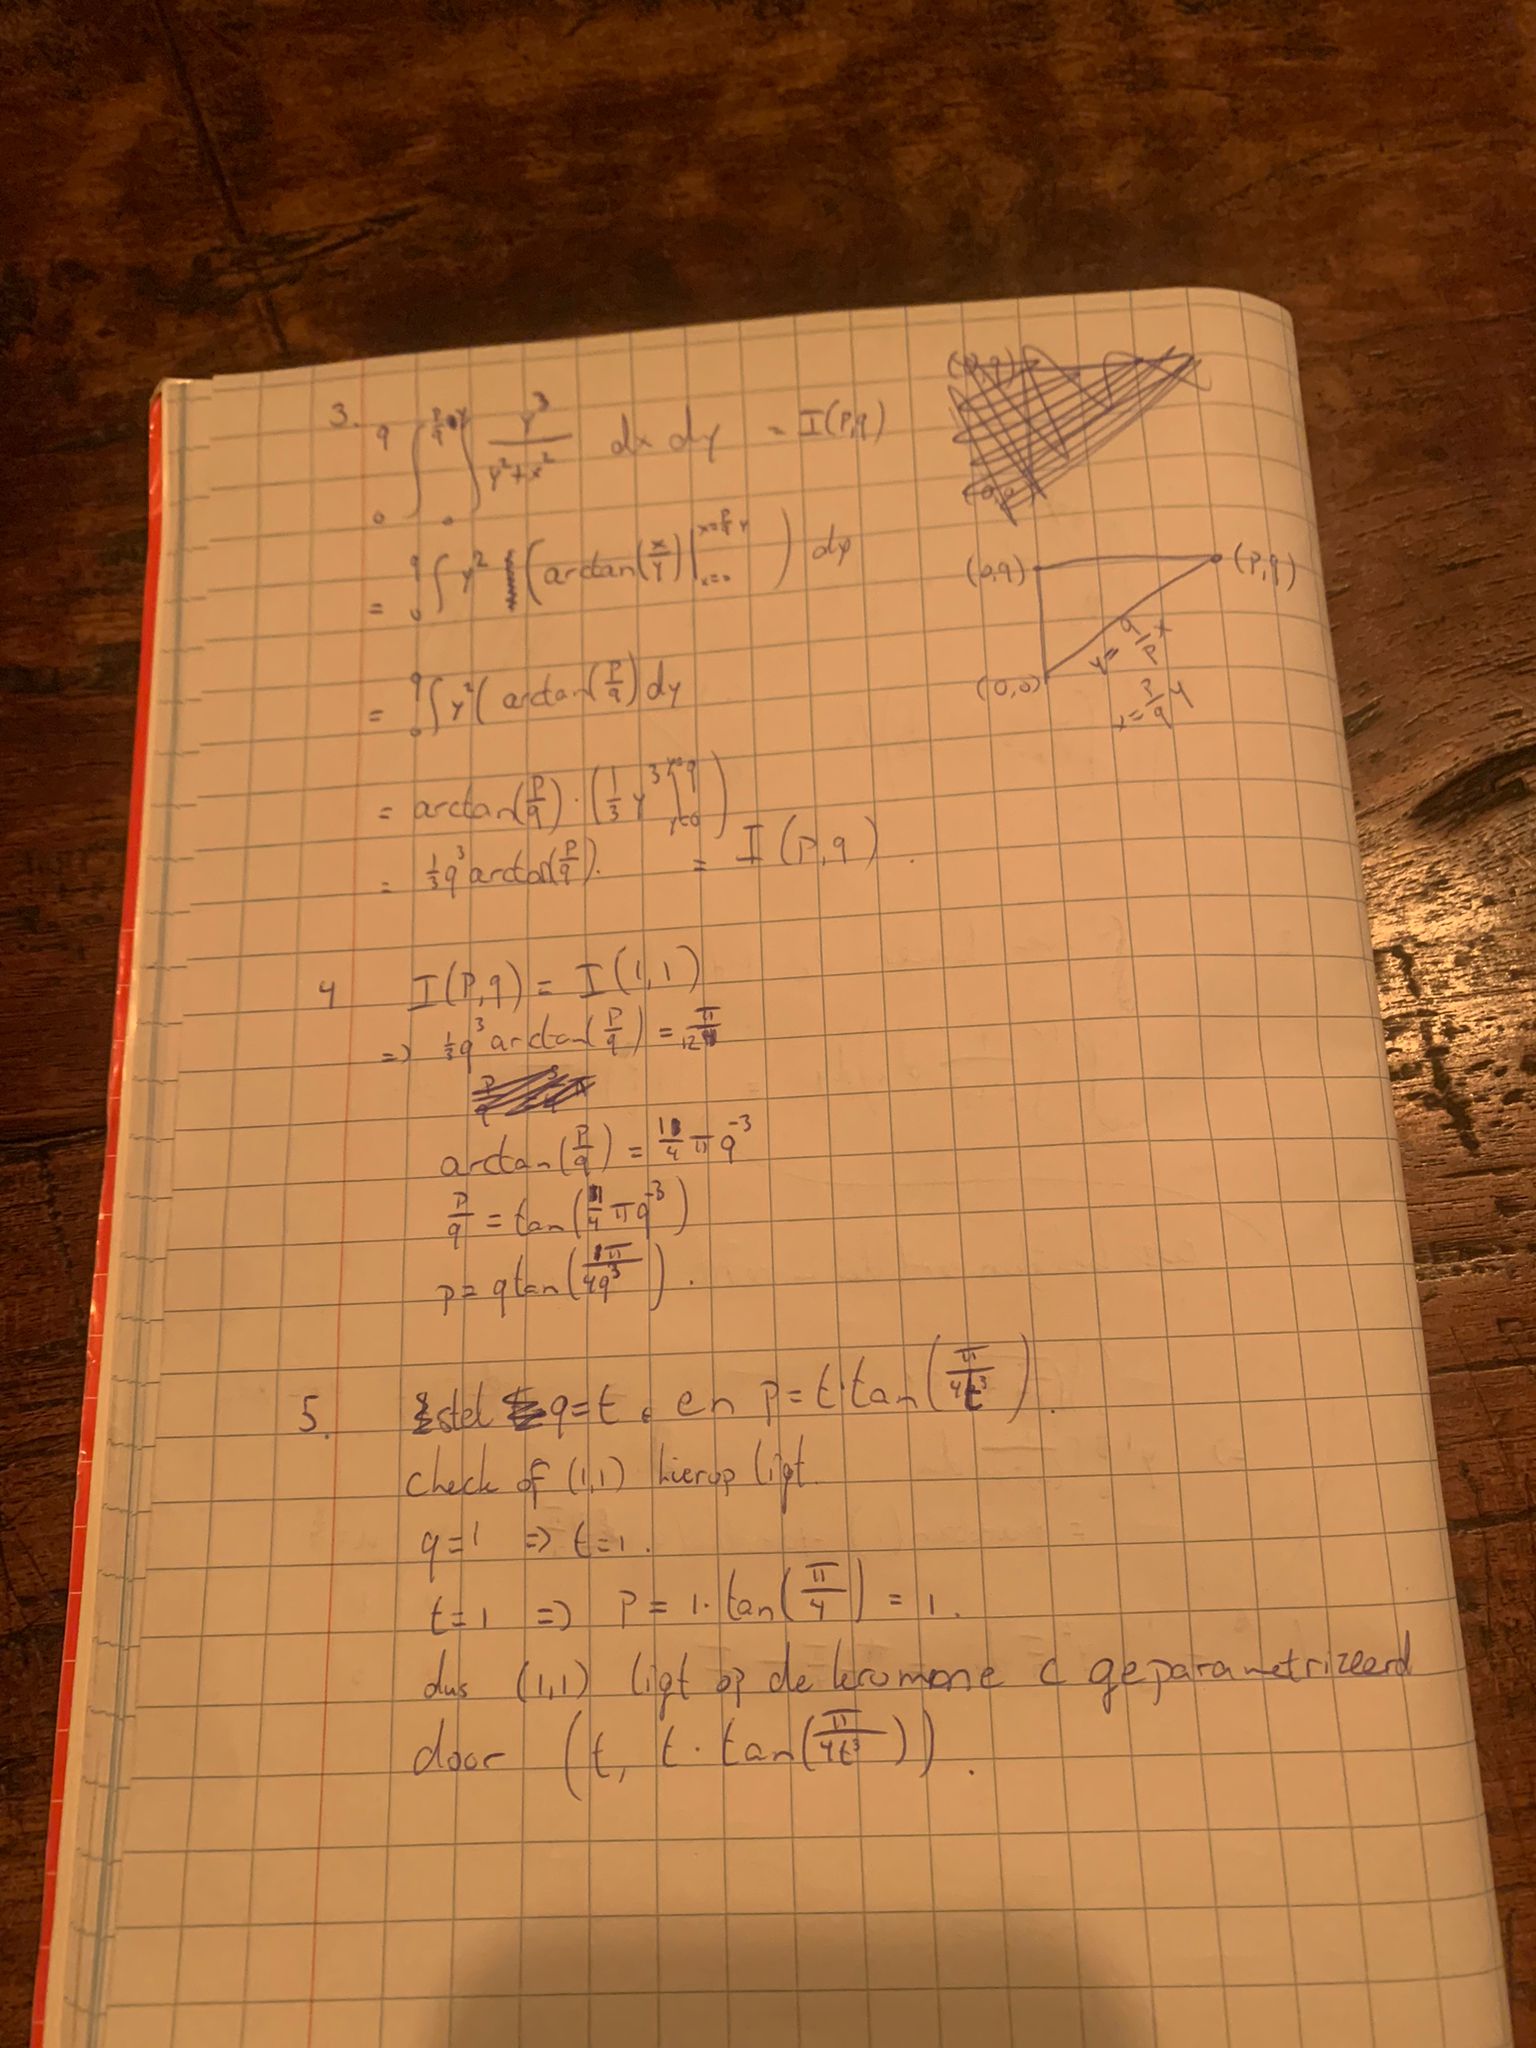 3. q∫0 p/q y∫0 y³/(y²+x²) dx dy = I(p,q)
= q∫0 y² (arctan(x/y)|x=p/q y x=0) dy
= q∫0 y²(arctan(p/q) dy
= arctan(p/q) · (1/3 y³|y=q y=0)
= 1/3 q³ arctan(p/q). = I(p,q).
(0,q) (p,q)
y = q/p x
(0,0)
4 I(p,q) = I(1,1)
=> 1/3 q³ arctan(p/q) = π/12
arctan(p/q) = 1/4 π q⁻³
p/q = tan(1/4 π q⁻³)
p = q tan(π/4q³).
5. stel q=t en p = t·tan(π/4t³).
check of (1,1) hierop ligt.
q=1 => t=1.
t=1 => p = 1·tan(π/4) = 1.
dus (1,1) ligt op de kromme C geparametrizeerd
door (t, t·tan(π/4t³)).